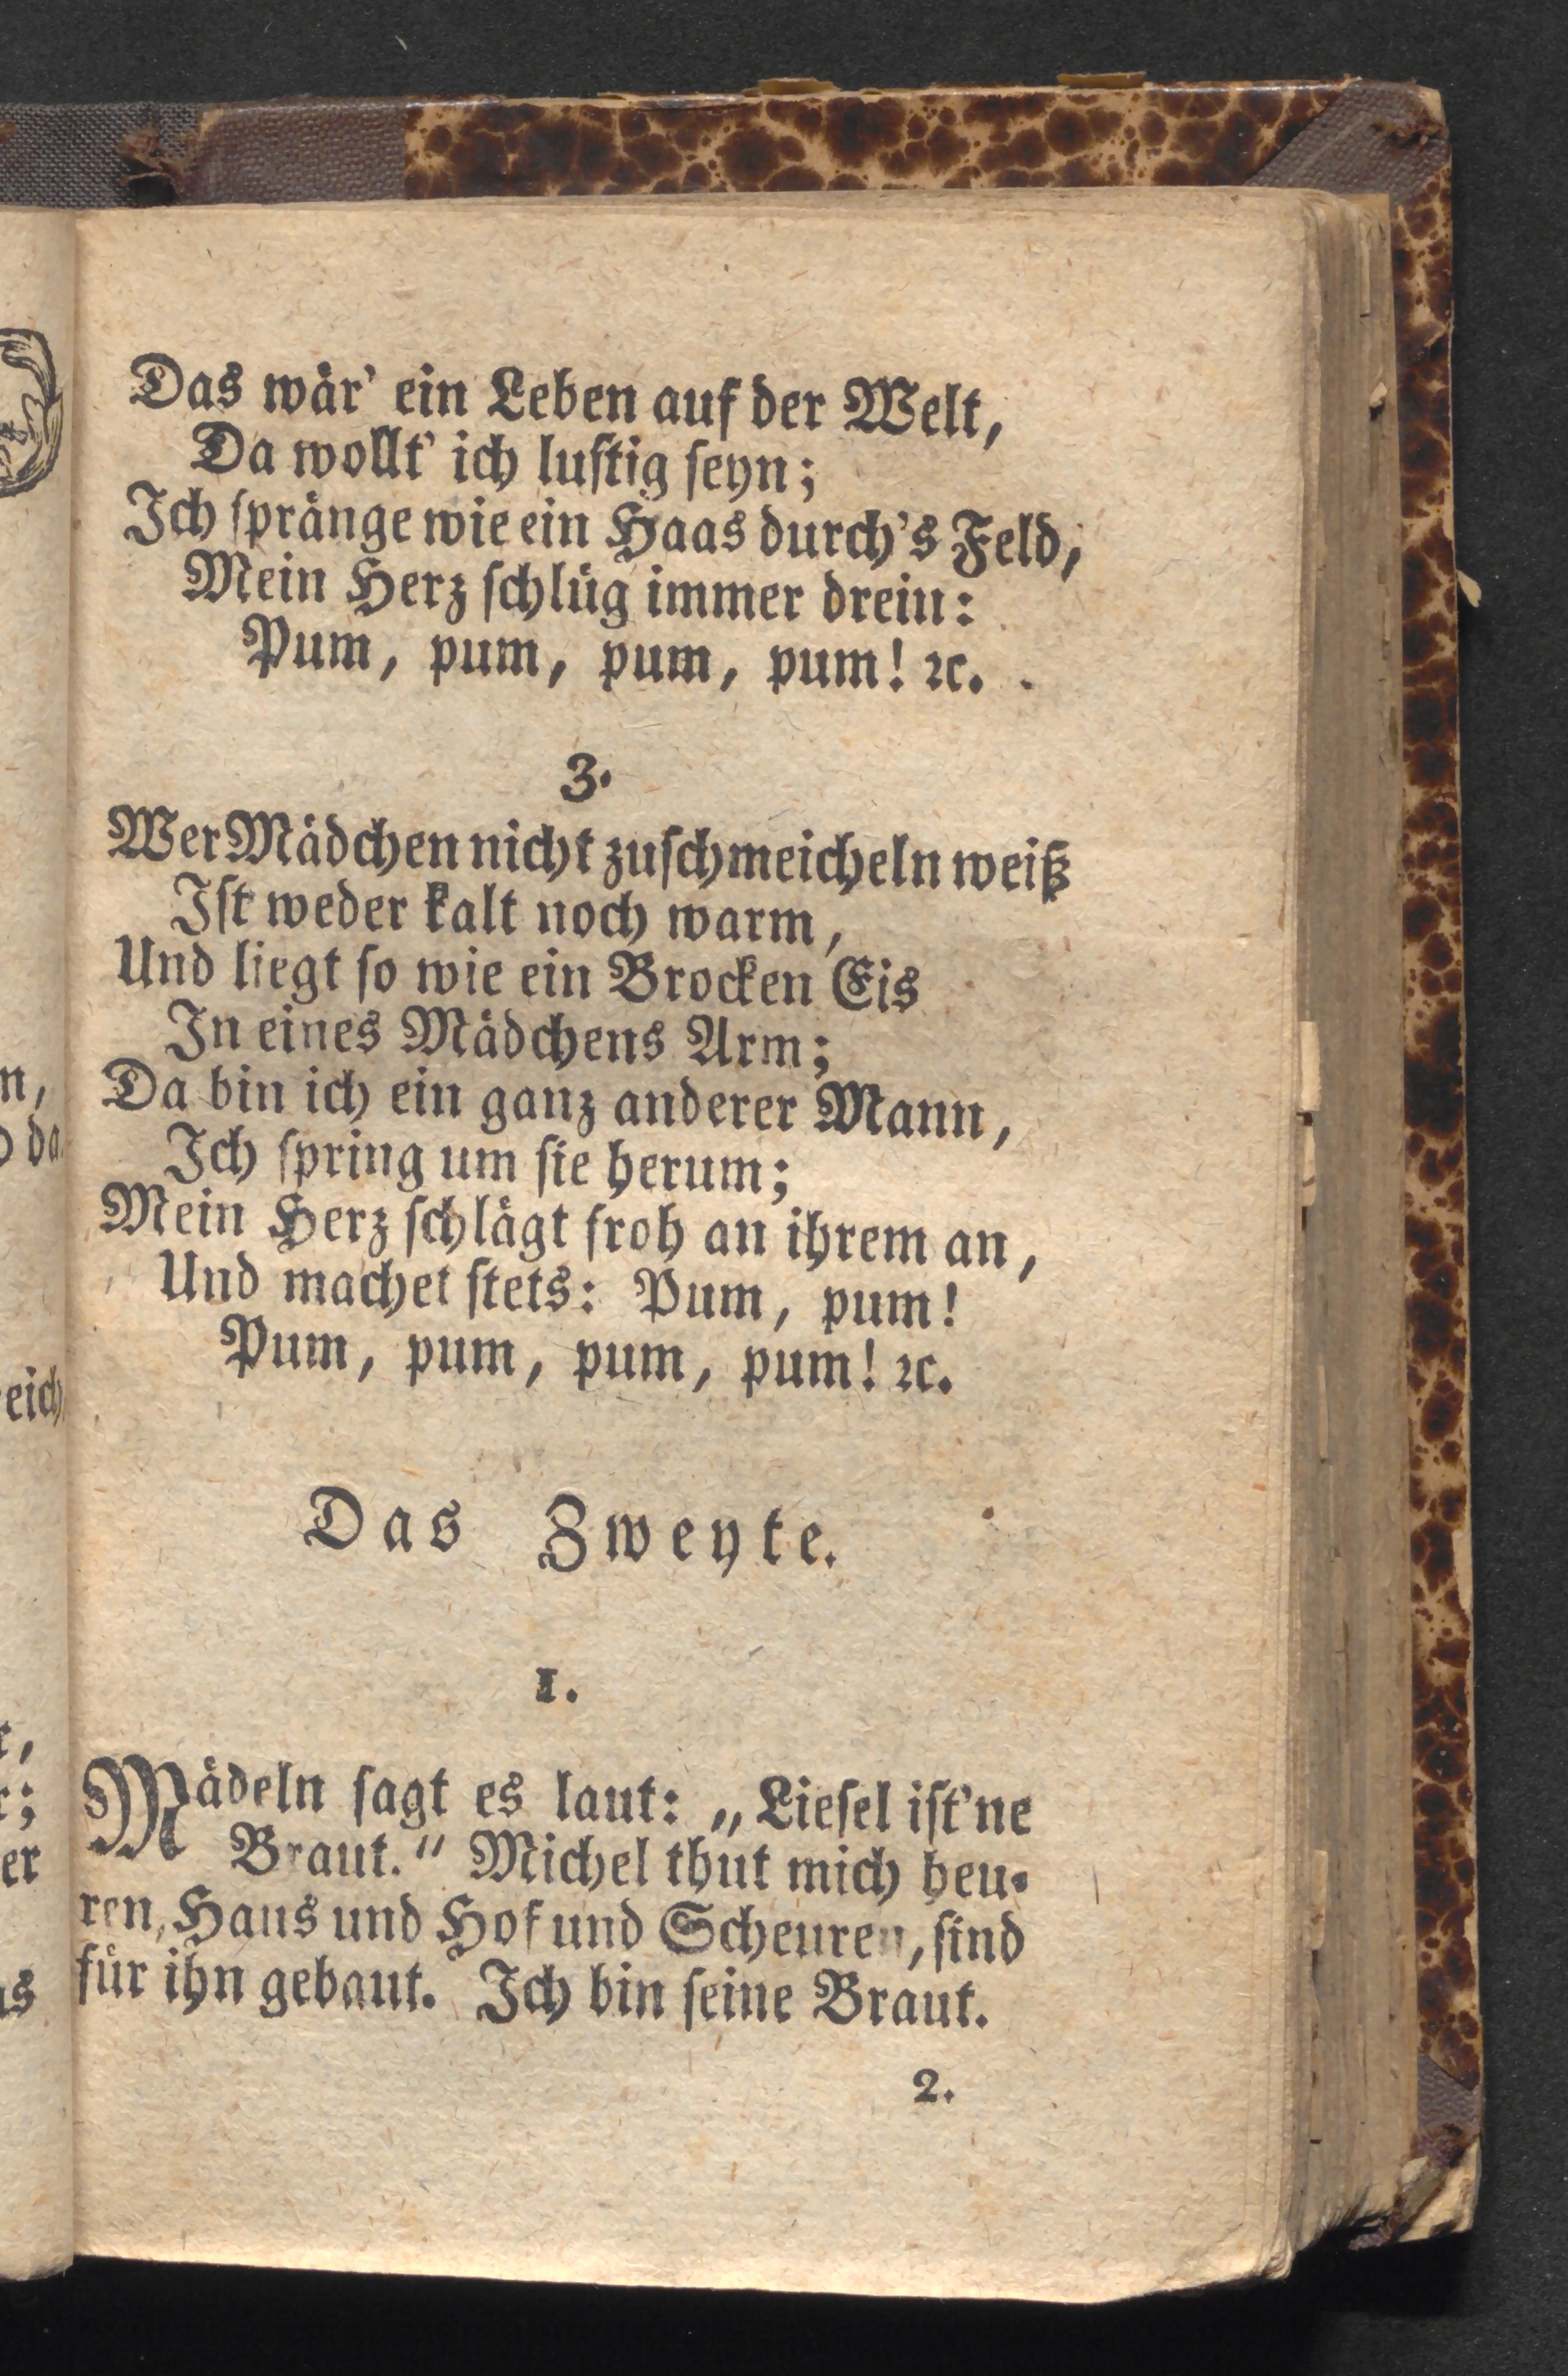 Das wär' ein Leben auf der Welt,
Da wollt' ich luſtig ſeyn;
Ich ſpränge wie ein Haas durch's Feld,
Mein Herz ſchlüg immer drein:
Pum, pum, pum, pum! ꝛc.
3.
Wer Mädchen nicht zu ſchmeicheln weiß
Iſt weder kalt noch warm,
Und liegt ſo wie ein Brocken Eis
In eines Mädchens Arm;
Da bin ich ein ganz anderer Mann,
Ich ſpring um ſie herum;
Mein Herz ſchlägt froh an ihrem an,
Und machet ſtets: Pum, pum!
Pum, pum, pum, pum! ꝛc.
Das Zweyte.
1.
Mädeln ſagt es laut: „Lieſel iſt'ne
Braut.“ Michel thut mich heu-
ren, Haus und Hof und Scheuren, ſind
für ihn gebaut. Ich bin ſeine Braut.
2.